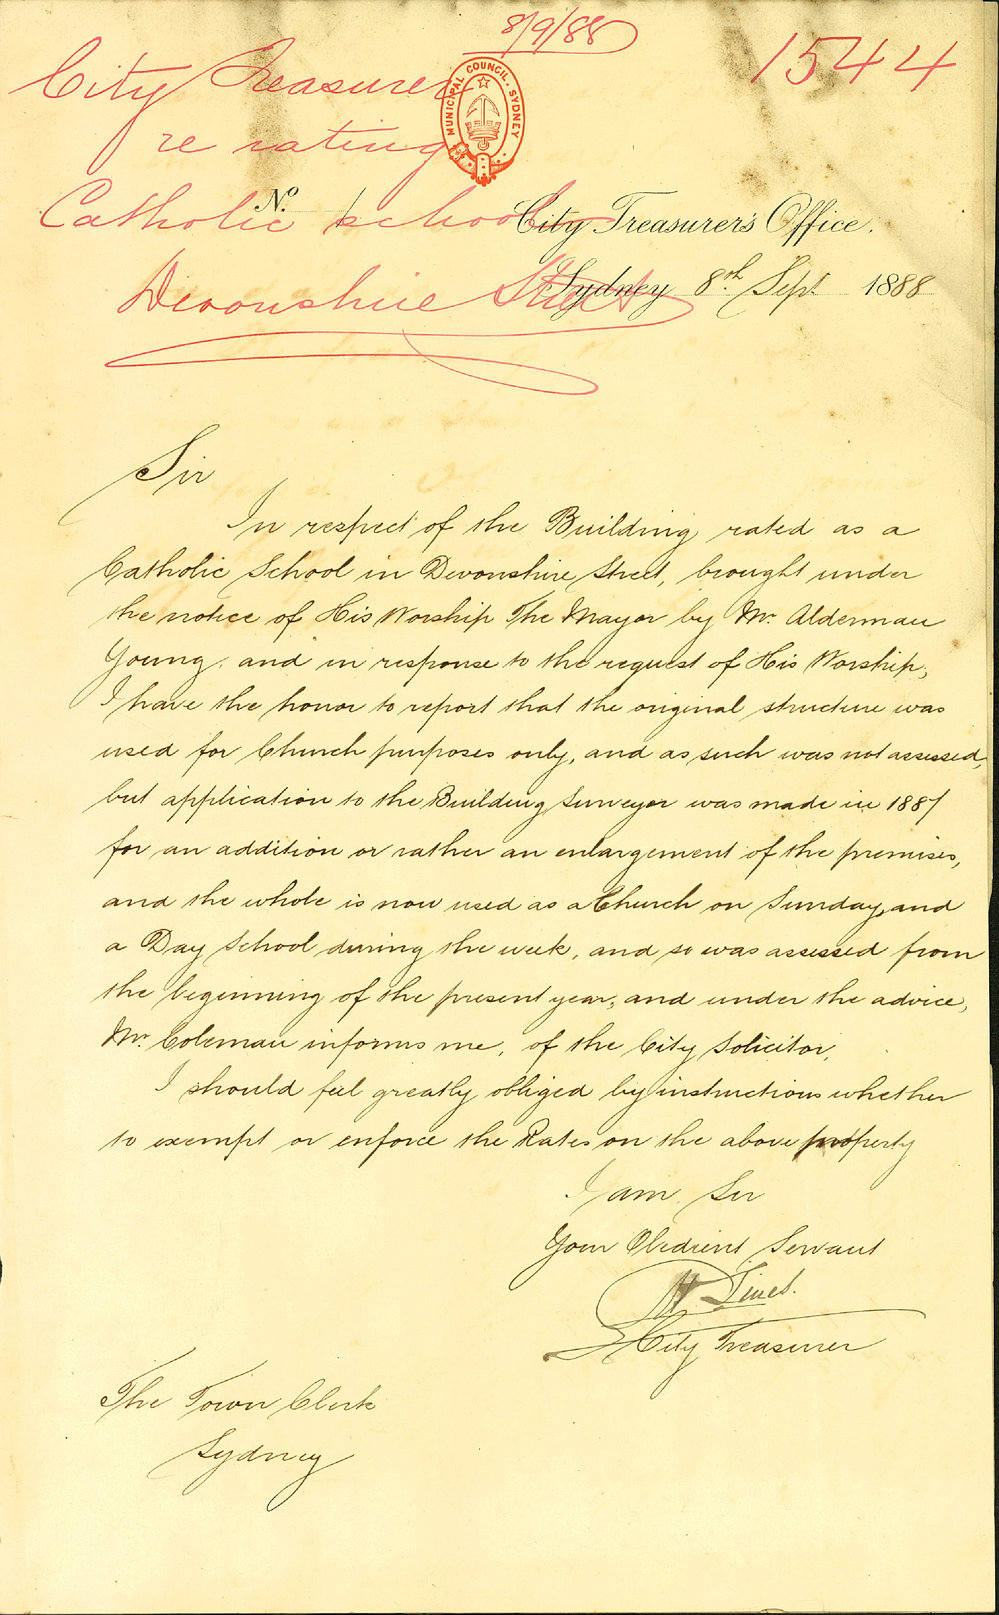 8/9/88
1544
City Treasurer
re rating
Catholic school
Devonshire Street
MUNICIPAL COUNCIL. SYDNEY
No.
City Treasurer's Office.
Sydney 8th Sept 1888
Sir
In respect of the Building rated as a
Catholic School in Devonshire Street, brought under
the notice of His Worship The Mayor by Mr. Alderman
Young, and in response to the request of His Worship,
I have the honor to report that the original structure was
used for Church purposes only, and as such was not assessed,
but application to the Building Surveyor was made in 1887
for an addition or rather an enlargement of the premises,
and the whole is now used as a Church on Sunday, and
a Day School during the week, and so was assessed from
the beginning of the present year, and under the advice,
Mr. Coleman informs me, of the City Solicitor.
I should feel greatly obliged by instructions whether
to exempt or enforce the Rates on the above property
I am Sir
Your Obedient Servant
City Treasurer
The Town Clerk
Sydney